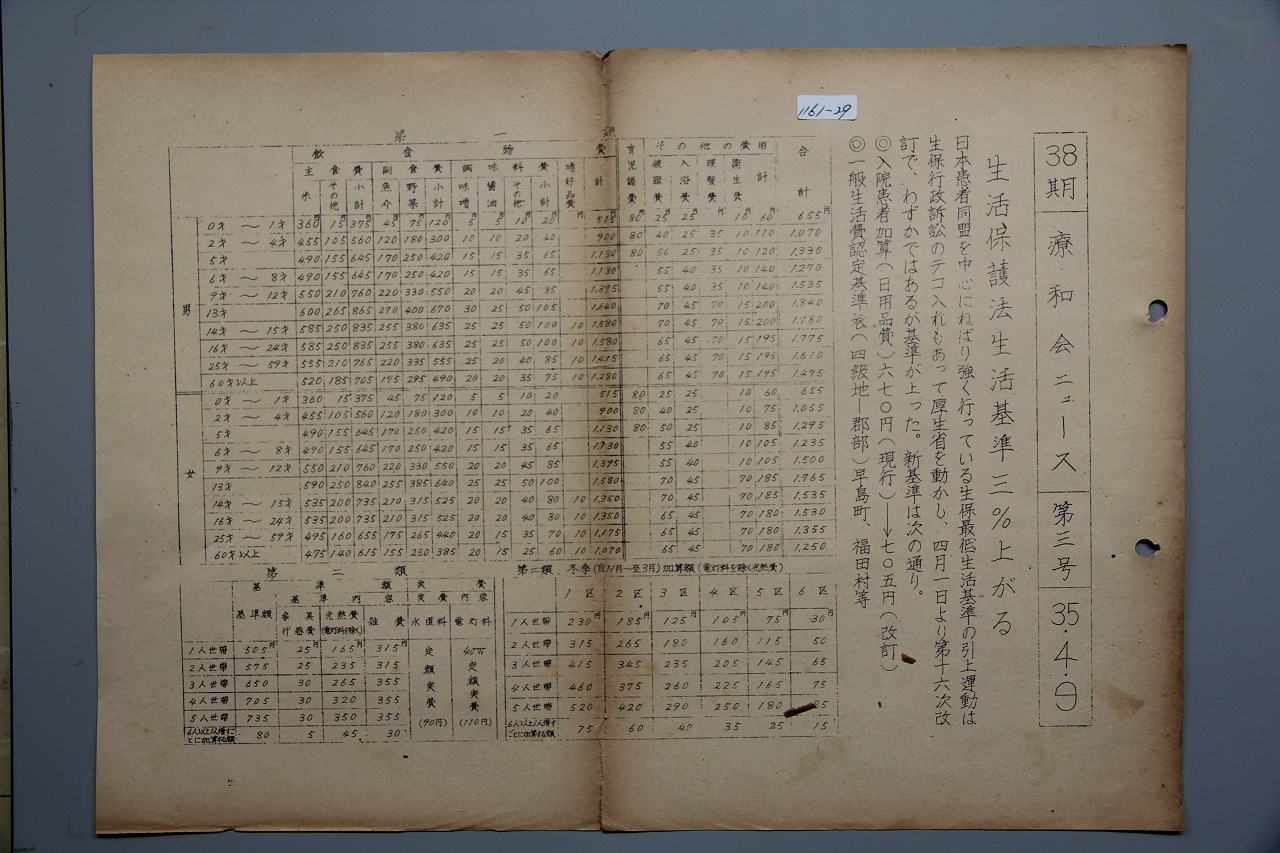 1161-29
38期 療和会ニュース 第三号 35.4.9
生活保護法生活基準三%上がる
日本患者同盟を中心にねばり強く行っている生保最低生活基準の引上運動は
生保行政訴訟のテコ入れもあって厚生省を動かし、四月一日より第十六次改
訂で、わずかではあるが基準が上った。新基準は次の通り。
◎入院患者加算(日用品費)六七〇円(現行)―→七〇五円(改訂)
◎一般生活費認定基準表(四級地―郡部)早島町、福田村等
第一類
飲食物費 育児諸費 その他の費用 合計
主食費 副食費 調味料費 嗜好品費 計 被服費 入浴費 理髪費 衛生費 計
米 その他 小計 魚介 野菜 小計 味噌 醤油 その他 小計
男
0才〜1才 360円 15円 375円 45円 75円 120円 5円 5円 10円 20円 円 515円 80円 25円 25円 円 10円 60円 655円
2才〜4才 455 105 560 120 180 300 10 10 20 40 900 80 40 25 35 10 110 1.070
5才 490 155 645 170 250 420 15 15 35 65 1.130 80 50 25 35 10 120 1.330
6才〜8才 490 155 645 170 250 420 15 15 35 65 1.130 55 40 35 10 140 1.270
9才〜12才 550 210 760 220 330 550 20 20 45 85 1.395 55 40 35 10 140 1.535
13才 600 265 865 270 400 670 30 25 50 105 1.640 70 45 70 15 200 1.840
14才〜15才 585 250 835 255 380 635 25 25 50 100 10 1.580 70 45 70 15 200 1.780
16才〜24才 585 250 835 255 380 635 25 25 50 100 10 1.580 65 45 70 15 195 1.775
25才〜59才 555 210 765 220 335 555 25 20 40 85 10 1.415 65 45 70 15 195 1.610
60才以上 520 185 705 195 295 490 20 20 35 75 10 1.280 65 45 70 15 195 1.475
女
0才〜1才 360 15 375 45 75 120 5 5 10 20 515 80 25 25 10 60 655
2才〜4才 455 105 560 120 180 300 10 10 20 40 900 80 40 25 10 75 1.055
5才 490 155 645 170 250 420 15 15 35 65 1.130 80 50 25 10 85 1.295
6才〜8才 490 155 645 170 250 420 15 15 35 65 1.130 55 40 10 105 1.235
9才〜12才 550 210 760 220 330 550 20 20 45 85 1.395 55 40 10 105 1.500
13才 590 250 840 255 385 640 25 25 50 100 1.580 70 45 70 185 1.765
14才〜15才 535 200 735 210 315 525 20 20 40 80 10 1.350 70 45 70 185 1.535
16才〜24才 535 200 735 210 315 525 20 20 40 80 10 1.350 65 45 70 180 1.530
25才〜59才 495 160 655 175 265 440 20 15 35 70 10 1.175 65 45 70 180 1.355
60才以上 475 140 615 155 230 385 20 15 25 60 10 1.070 65 45 70 180 1.250
第二類
基準額 実費
基準額 基準内容 実費内容
家具什器費 光熱費(電灯料を除く) 雑費 水道料 電灯料
1人世帯 505円 25円 165円 315円
2人世帯 575 25 235 315
3人世帯 650 30 265 355
4人世帯 705 30 320 355
5人世帯 735 30 350 355
6人以上1人増すごとに加算する額 80 5 45 30
定額実費(90円)
40W定額実費(110円)
第二類 冬季(自11月〜至3月)加算額(電灯料を除く光熱費)
1区 2区 3区 4区 5区 6区
1人世帯 230円 185円 125円 105円 75円 30円
2人世帯 315 265 180 160 115 50
3人世帯 415 345 235 205 145 65
4人世帯 460 375 260 225 165 75
5人世帯 520 420 290 250 180 85
6人以上1人増すごとに加算する額 75 60 40 35 25 15